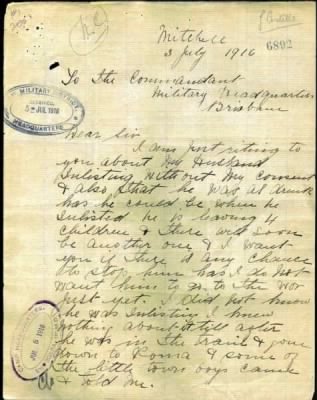 Mitchell
3 July 1916
6892
To The Commandant
Military Headquarters
Brisbane
MILITARY DISTRICT
5 JUL 1916
HEADQUARTERS
Dear Sir
I am just riting to
you about My Husband
Enlisting Without My Consent
& also That he was as drunk
has he could be when he
Enlisted he is leaving 4
Children & There will soon
be another one & I want
you if There is any Chance
to stop him has I do not
want him to go to the War
just yet. I did not know
he was Enlisting I knew
nothing about it till after
he was in the Train & gone
down to Roma & some of
the little town boys came
& told me.
JUL 5 1916